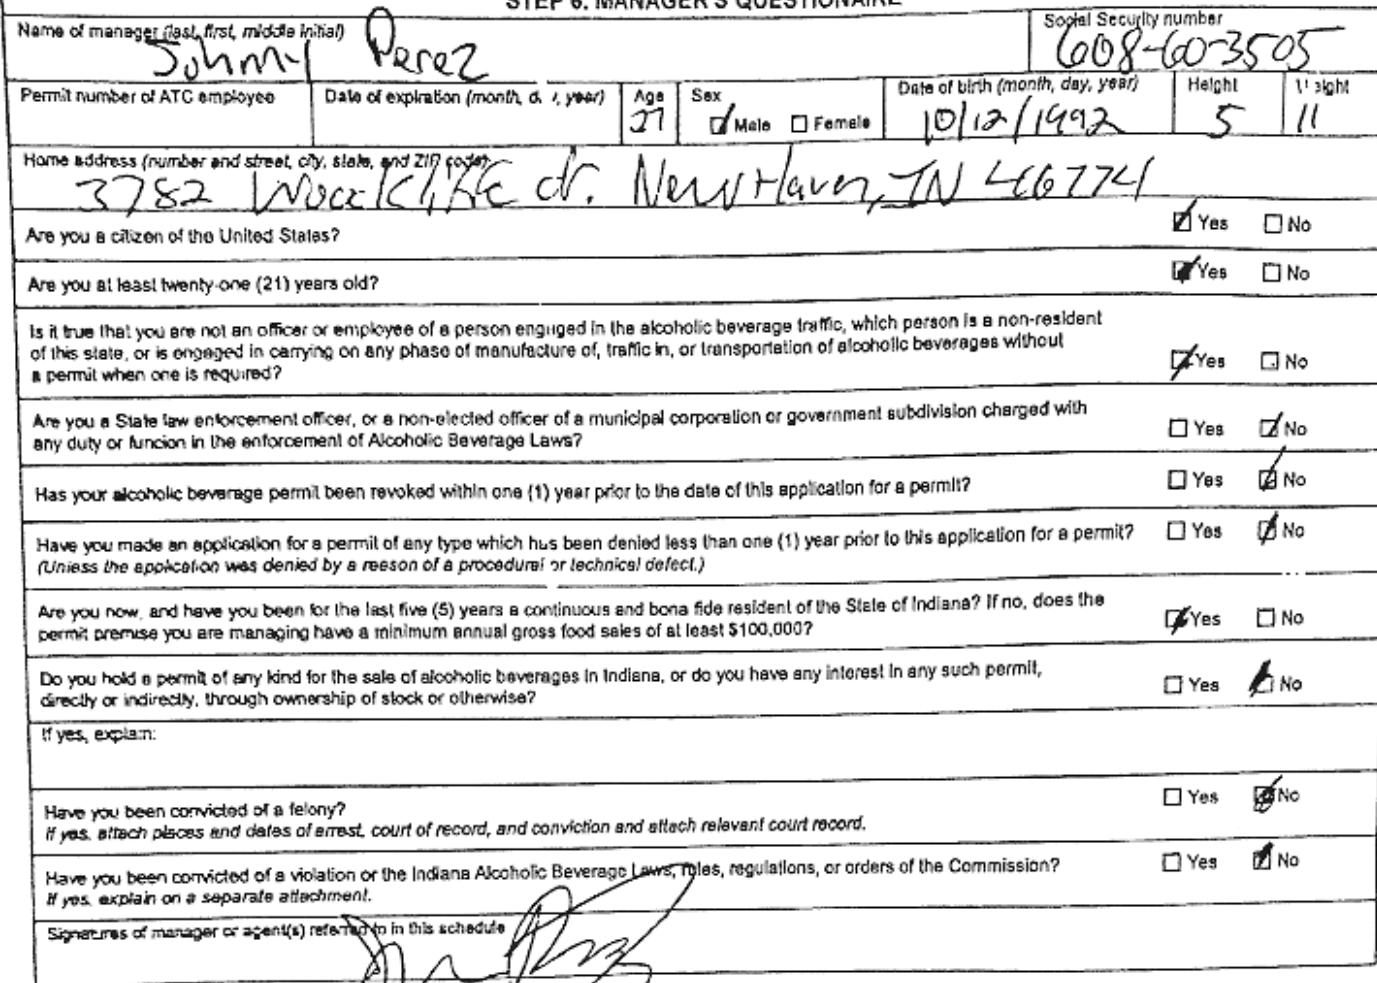 STEP 6. MANAGER'S QUESTIONAIRE
Name of manager (last, first, middle initial)
Perez
Social Security number
608-60-3505
Permit number of ATC employee
Date of expiration (month, day, year)
Age
27
Sex
Male Female
Date of birth (month, day, year)
10/12/1992
Height
5
Weight
11
Home address (number and street, city, state, and ZIP code)
3782 dr. New Haven, IN 46774
Are you a citizen of the United States? Yes No
Are you at least twenty-one (21) years old? Yes No
Is it true that you are not an officer or employee of a person engaged in the alcoholic beverage traffic, which person is a non-resident
of this state, or is engaged in carrying on any phase of manufacture of, traffic in, or transportation of alcoholic beverages without
a permit when one is required? Yes No
Are you a State law enforcement officer, or a non-elected officer of a municipal corporation or government subdivision charged with
any duty or funcion in the enforcement of Alcoholic Beverage Laws? Yes No
Has your alcoholic beverage permit been revoked within one (1) year prior to the date of this application for a permit? Yes No
Have you made an application for a permit of any type which has been denied less than one (1) year prior to this application for a permit? Yes No
(Unless the application was denied by a reason of a procedural or technical defect.)
Are you now, and have you been for the last five (5) years a continuous and bona fide resident of the State of Indiana? If no, does the
permit premise you are managing have a minimum annual gross food sales of at least $100,000? Yes No
Do you hold a permit of any kind for the sale of alcoholic beverages in Indiana, or do you have any interest in any such permit,
directly or indirectly, through ownership of stock or otherwise? Yes No
If yes, explain:
Have you been convicted of a felony? Yes No
If yes, attach places and dates of arrest, court of record, and conviction and attach relevant court record.
Have you been convicted of a violation or the Indiana Alcoholic Beverage Laws, rules, regulations, or orders of the Commission? Yes No
If yes, explain on a separate attachment.
Signatures of manager or agent(s) referred to in this schedule